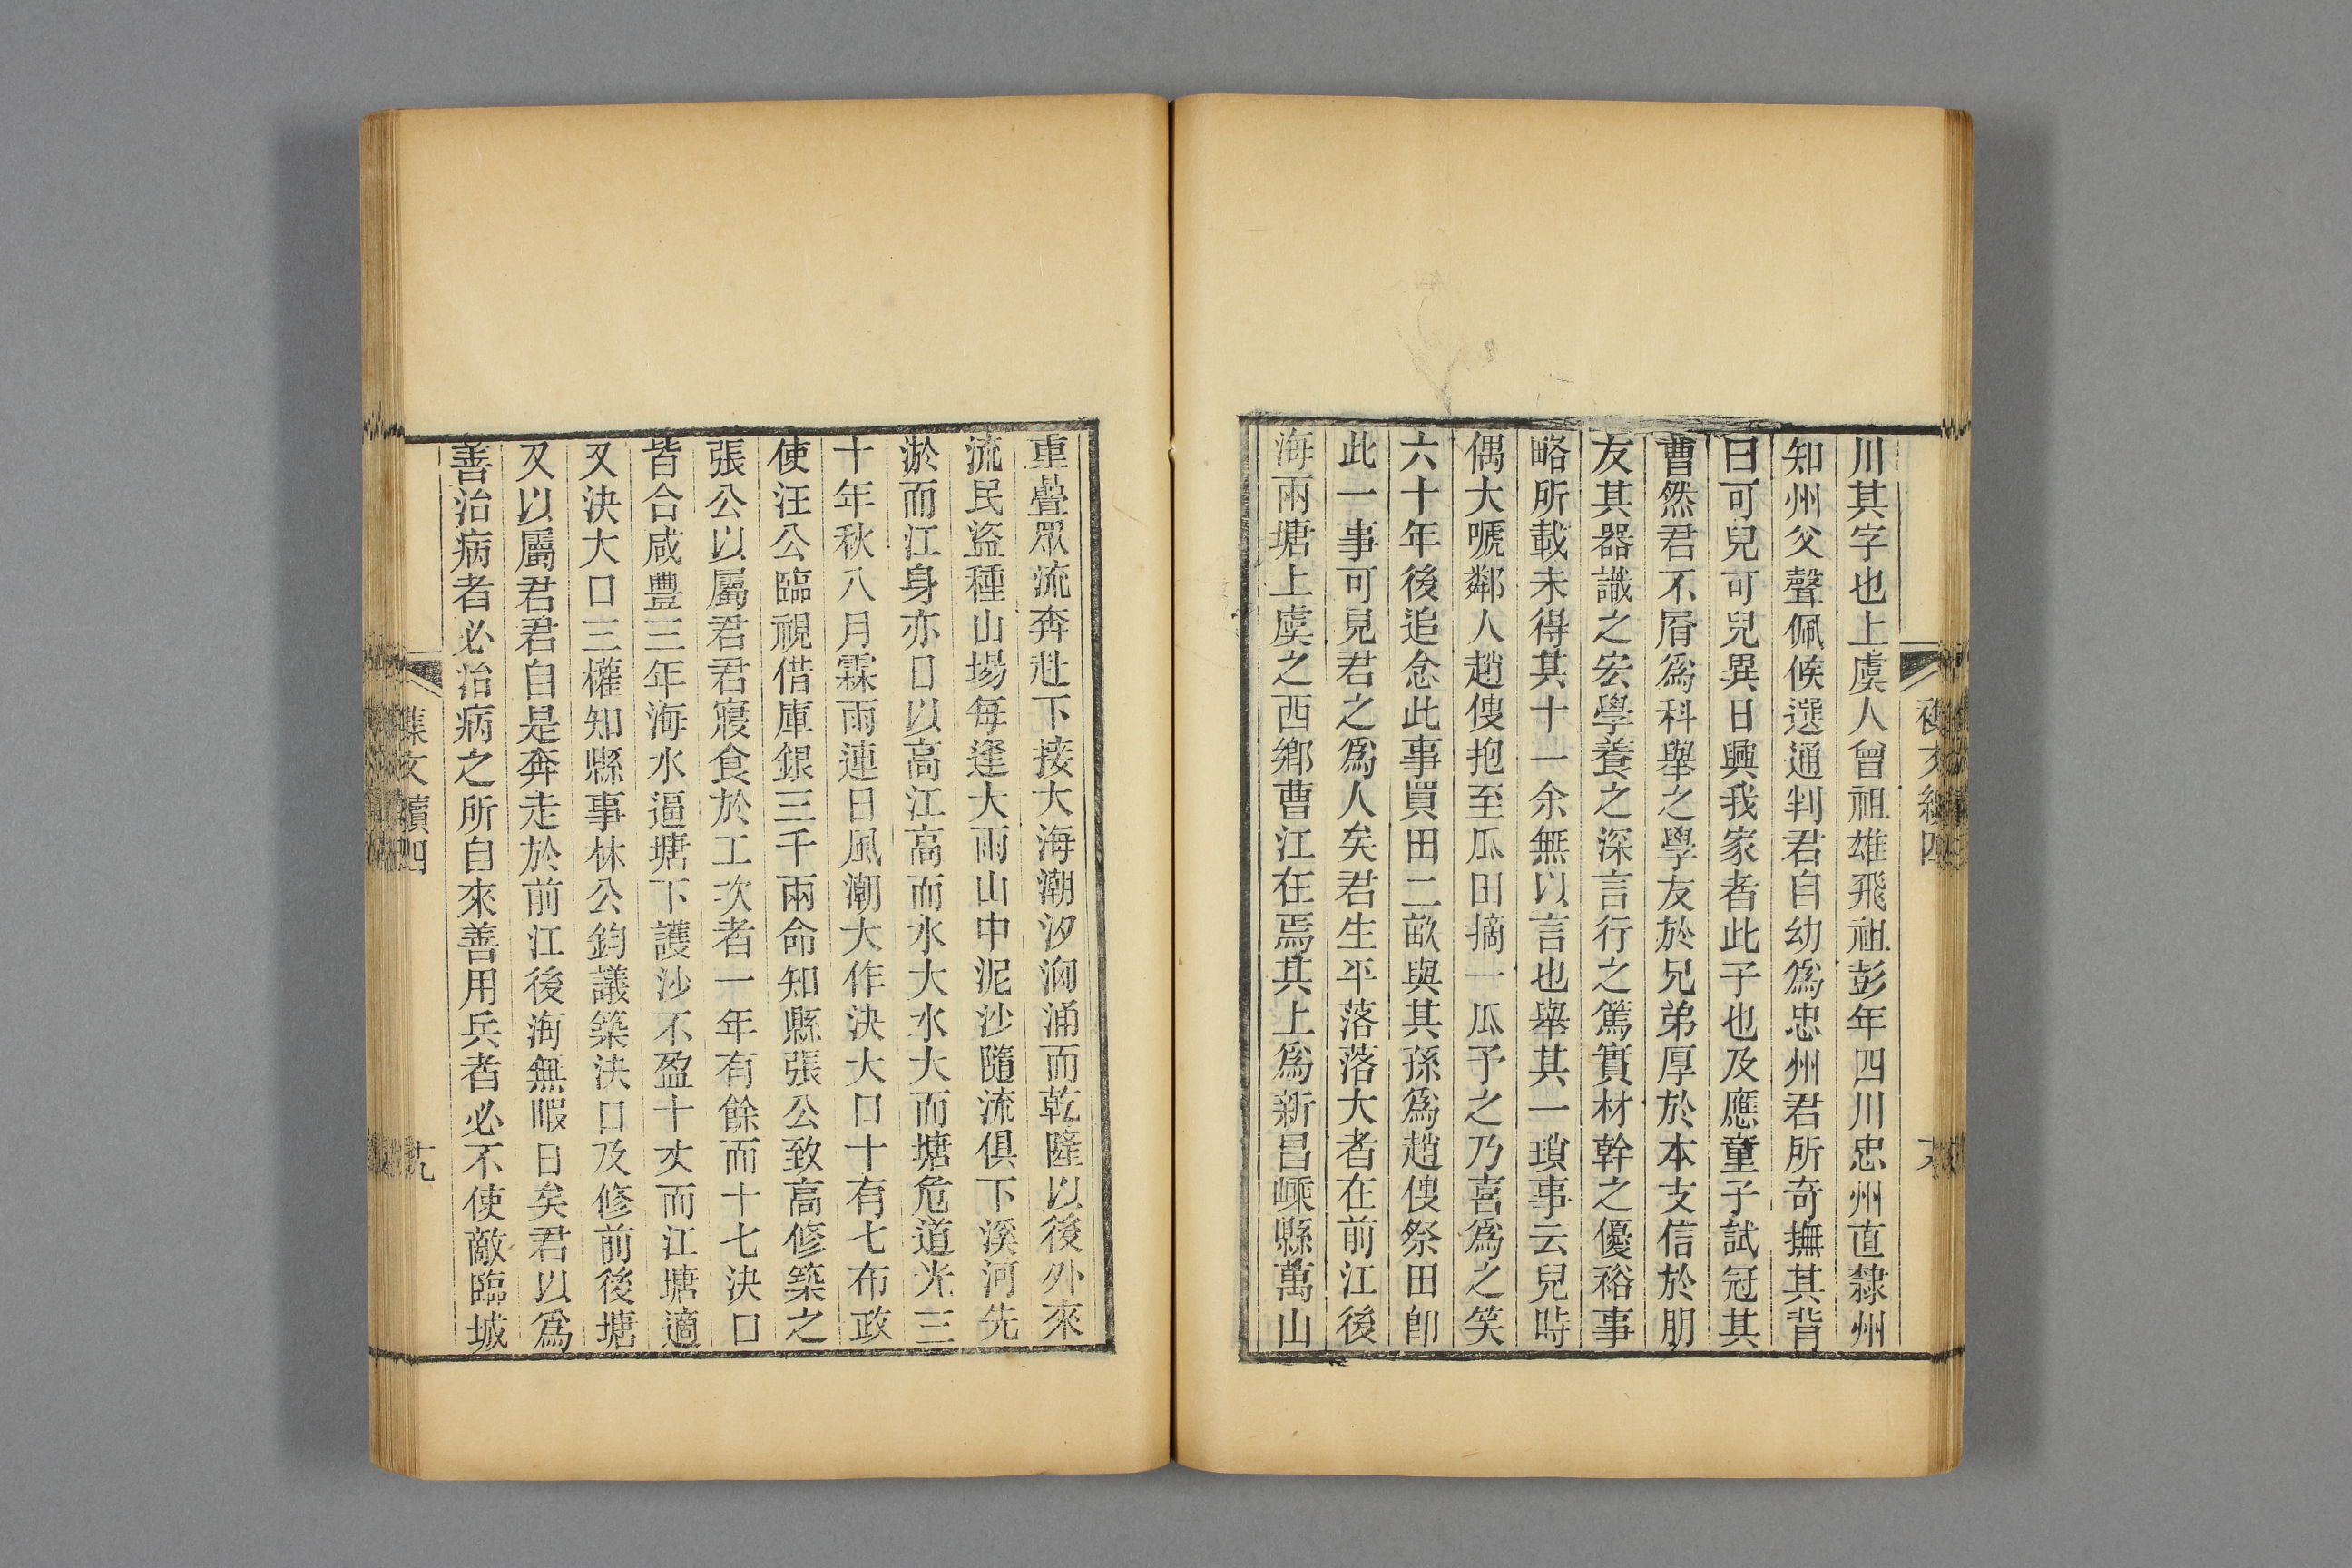 川其字也上虞人曾祖雄飛祖彭年四川忠州直隸州
知州父聲佩候選通判君自幼爲忠州君所奇撫其背
曰可兒可兒異日興我家者此子也及應童子試冠其
曹然君不屑爲科舉之學友於兄弟厚於本支信於朋
友其器識之宏學養之深言行之篤實材幹之優裕事
略所載未得其十一余無以言也舉其一瑣事云兒時
偶大嗁鄰人趙傁抱至瓜田摘一瓜予之乃喜爲之笑
六十年後追念此事買田二畝與其孫爲趙傁祭田卽
此一事可見君之爲人矣君生平落落大者在前江後
海兩塘上虞之西鄉曹江在焉其上爲新昌嵊縣萬山
重疊眾流奔赴下接大海潮汐洶涌而乾隆以後外來
流民盜種山場每逢大雨山中泥沙隨流俱下溪河先
淤而江身亦日以高江高而水大水大而塘危道光三
十年秋八月霖雨連日風潮大作決大口十有七布政
使汪公臨視借庫銀三千兩命知縣張公致高修築之
張公以屬君君寢食於工次者一年有餘而十七決口
皆合咸豐三年海水逼塘下護沙不盈十丈而江塘適
又決大口三權知縣事林公鈞議築決口及修前後塘
又以屬君君自是奔走於前江後海無暇日矣君以爲
善治病者必治病之所自來善用兵者必不使敵臨城
文續四